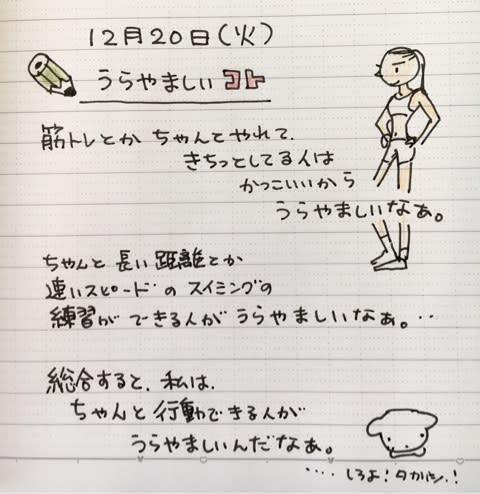 12月20日(火)
うらやましいコト
筋トレとか ちゃんとやれて、
きちっとしてる人は
かっこいいから
うらやましいなぁ。
ちゃんと 長い 距離とか
速いスピードの スイミングの
練習が できる人が うらやましいなぁ。‥
総合すると、私は、
ちゃんと 行動できる人が
うらやましいんだなぁ。
‥‥しろよ!